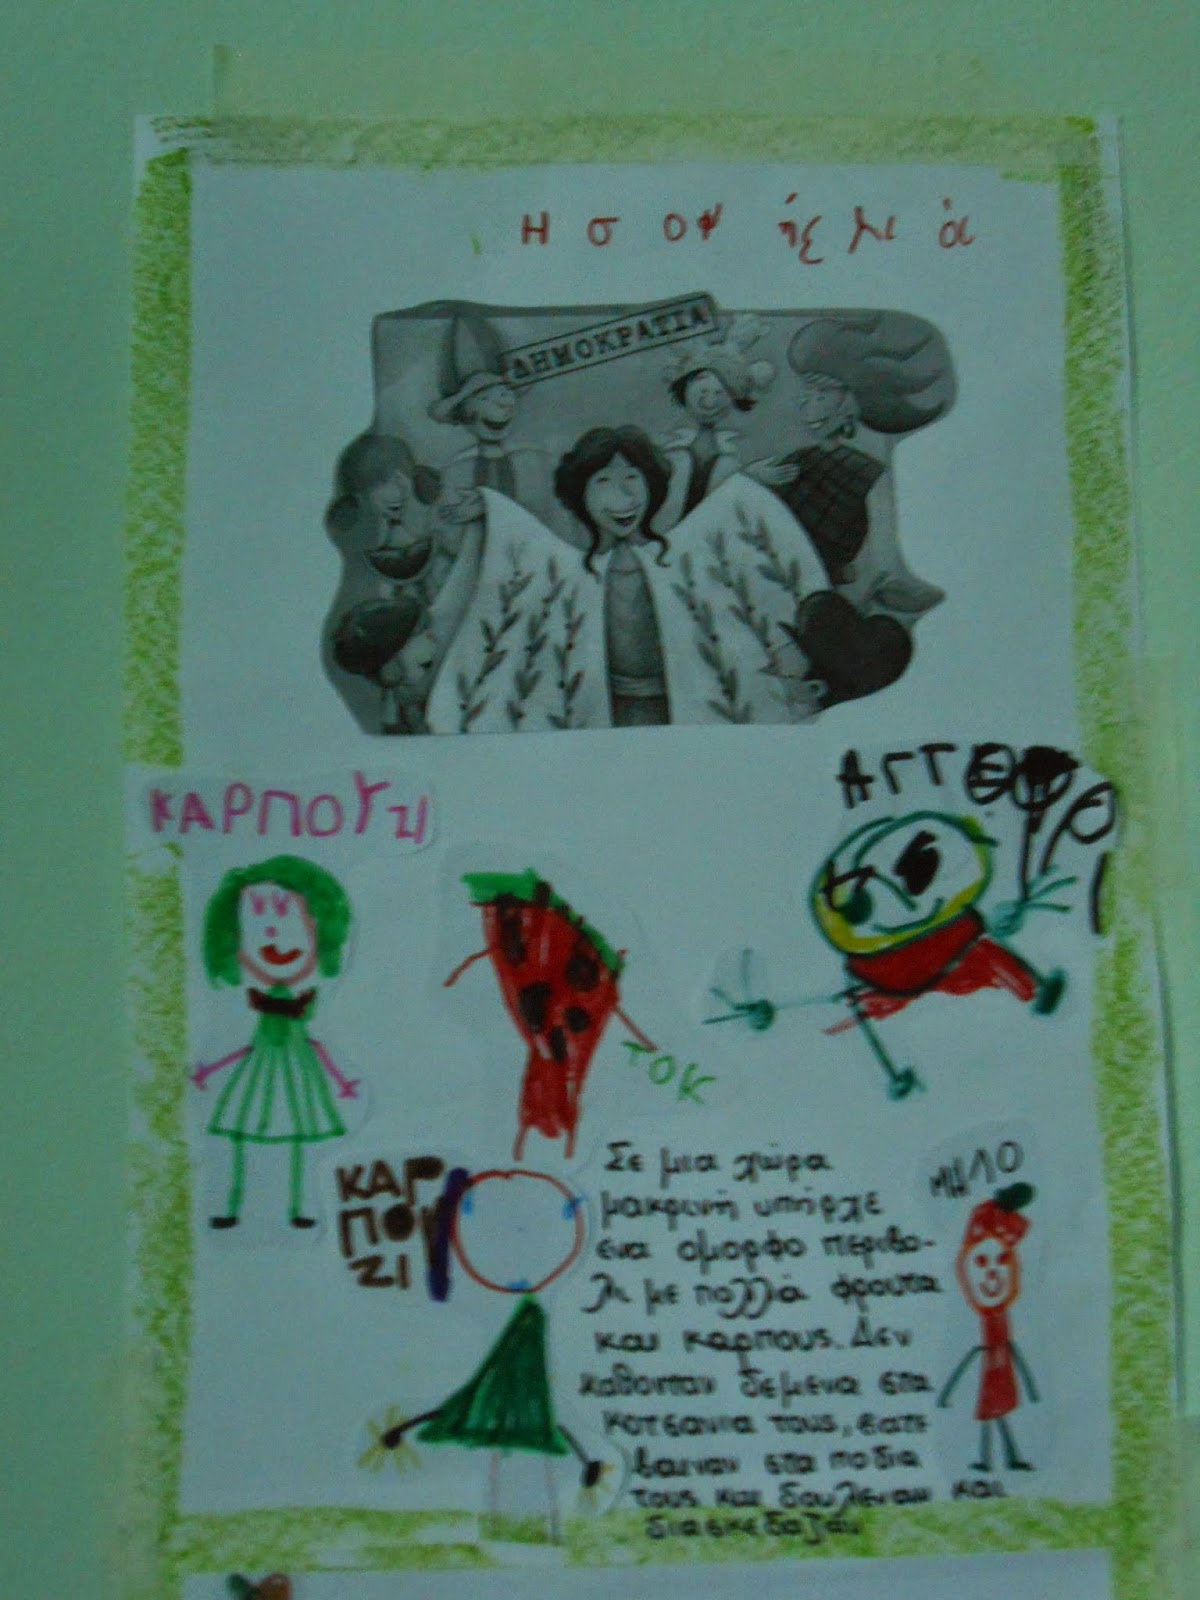 ΔΗΜΟΚΡΑΤΙΑ
ΚΑΡΠΟΥΖΙ
ΑΓΓΟΥΡΙ
ΤΟΚ
ΚΑΡ
ΠΟΥ
ΖΙ
Σε μια χώρα
μακρινή υπήρχε
ένα όμορφο περιβό-
λι με πολλά φρουτα
και καρπους. Δεν
καθονταν δεμενα στα
κοτσανια τους,
βαιναν στα ποδια
τους και δουλευαν και
διασκεδαζαν
ΜΗΛΟ